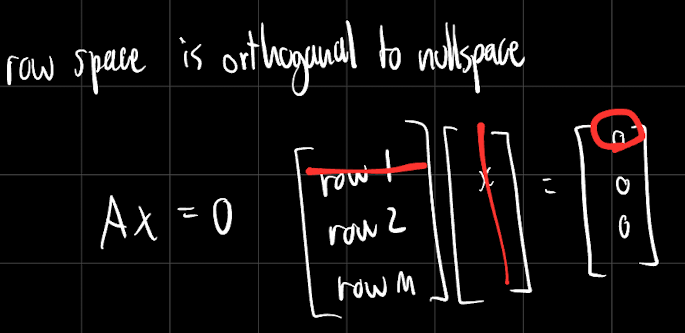 row space is orthoganal to nullspace
Ax = 0 [row 1 row 2 row m] [x] = [0 0 0]